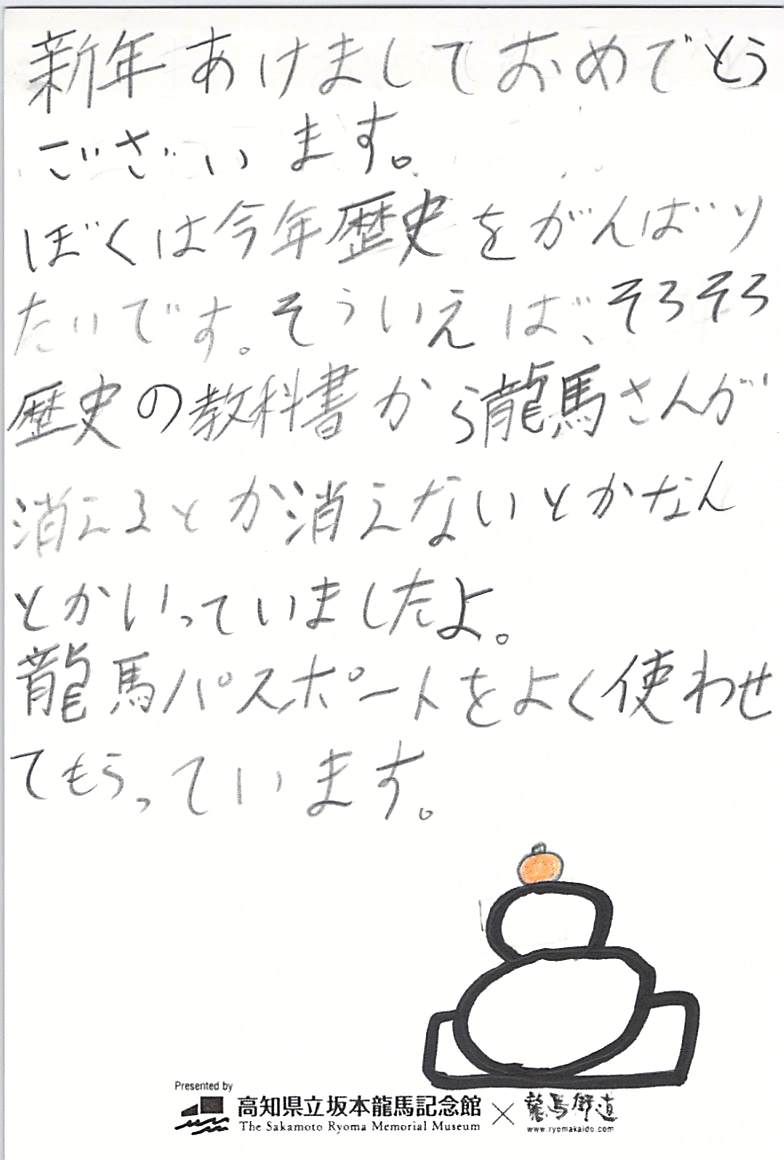 新年あけましておめでとう
ございます。
ぼくは今年歴史をがんばり
たいです。そういえば、そろそろ
歴史の教科書から龍馬さんが
消えるとか消えないとかなん
とかいっていましたよ。
龍馬パスポートをよく使わせ
てもらっています。
Presented by
高知県立坂本龍馬記念館
The Sakamoto Ryoma Memorial Museum
×
龍馬街道
www.ryomakaido.com